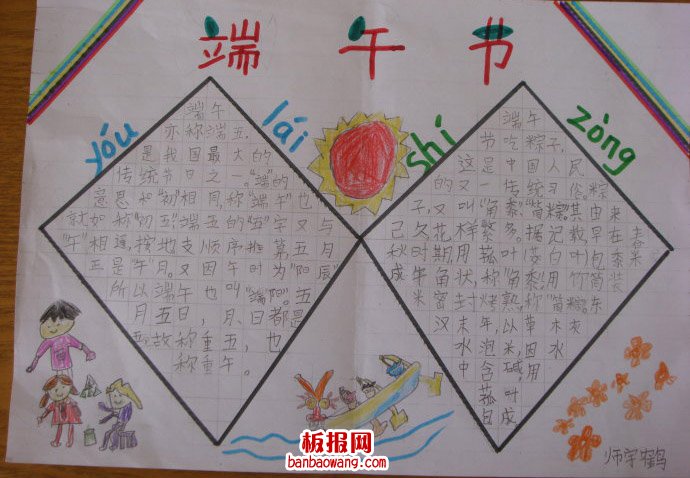 端午节
yóu lái shí zòng
端午
亦称端五，
是我国最大的
传统节日之一。“端”的
意思如“初”相同，称“端午”也
就如称“初五”；端五的“五”字又与
“午”相通，按地支顺序推算，五月
正是“午”月。又因午时为“阳辰”
所以端午也叫“端阳”。五
月五日，月、日都是
五，故称重五，也
称重午。
端午
节吃粽子，
这是中国人民
的又一传统习俗。粽
子，又叫“角黍”“筒粽”。其由来
已久，花样繁多。据记载，早在春
秋时期，用菰叶
成牛角状，称“角黍”；用竹筒装
米密封烤熟，称“筒粽”。东
汉末年，以草木灰
水泡米，因水
中含碱，用
菰叶
包
成
师宇鹤
板报网
banbaowang.com